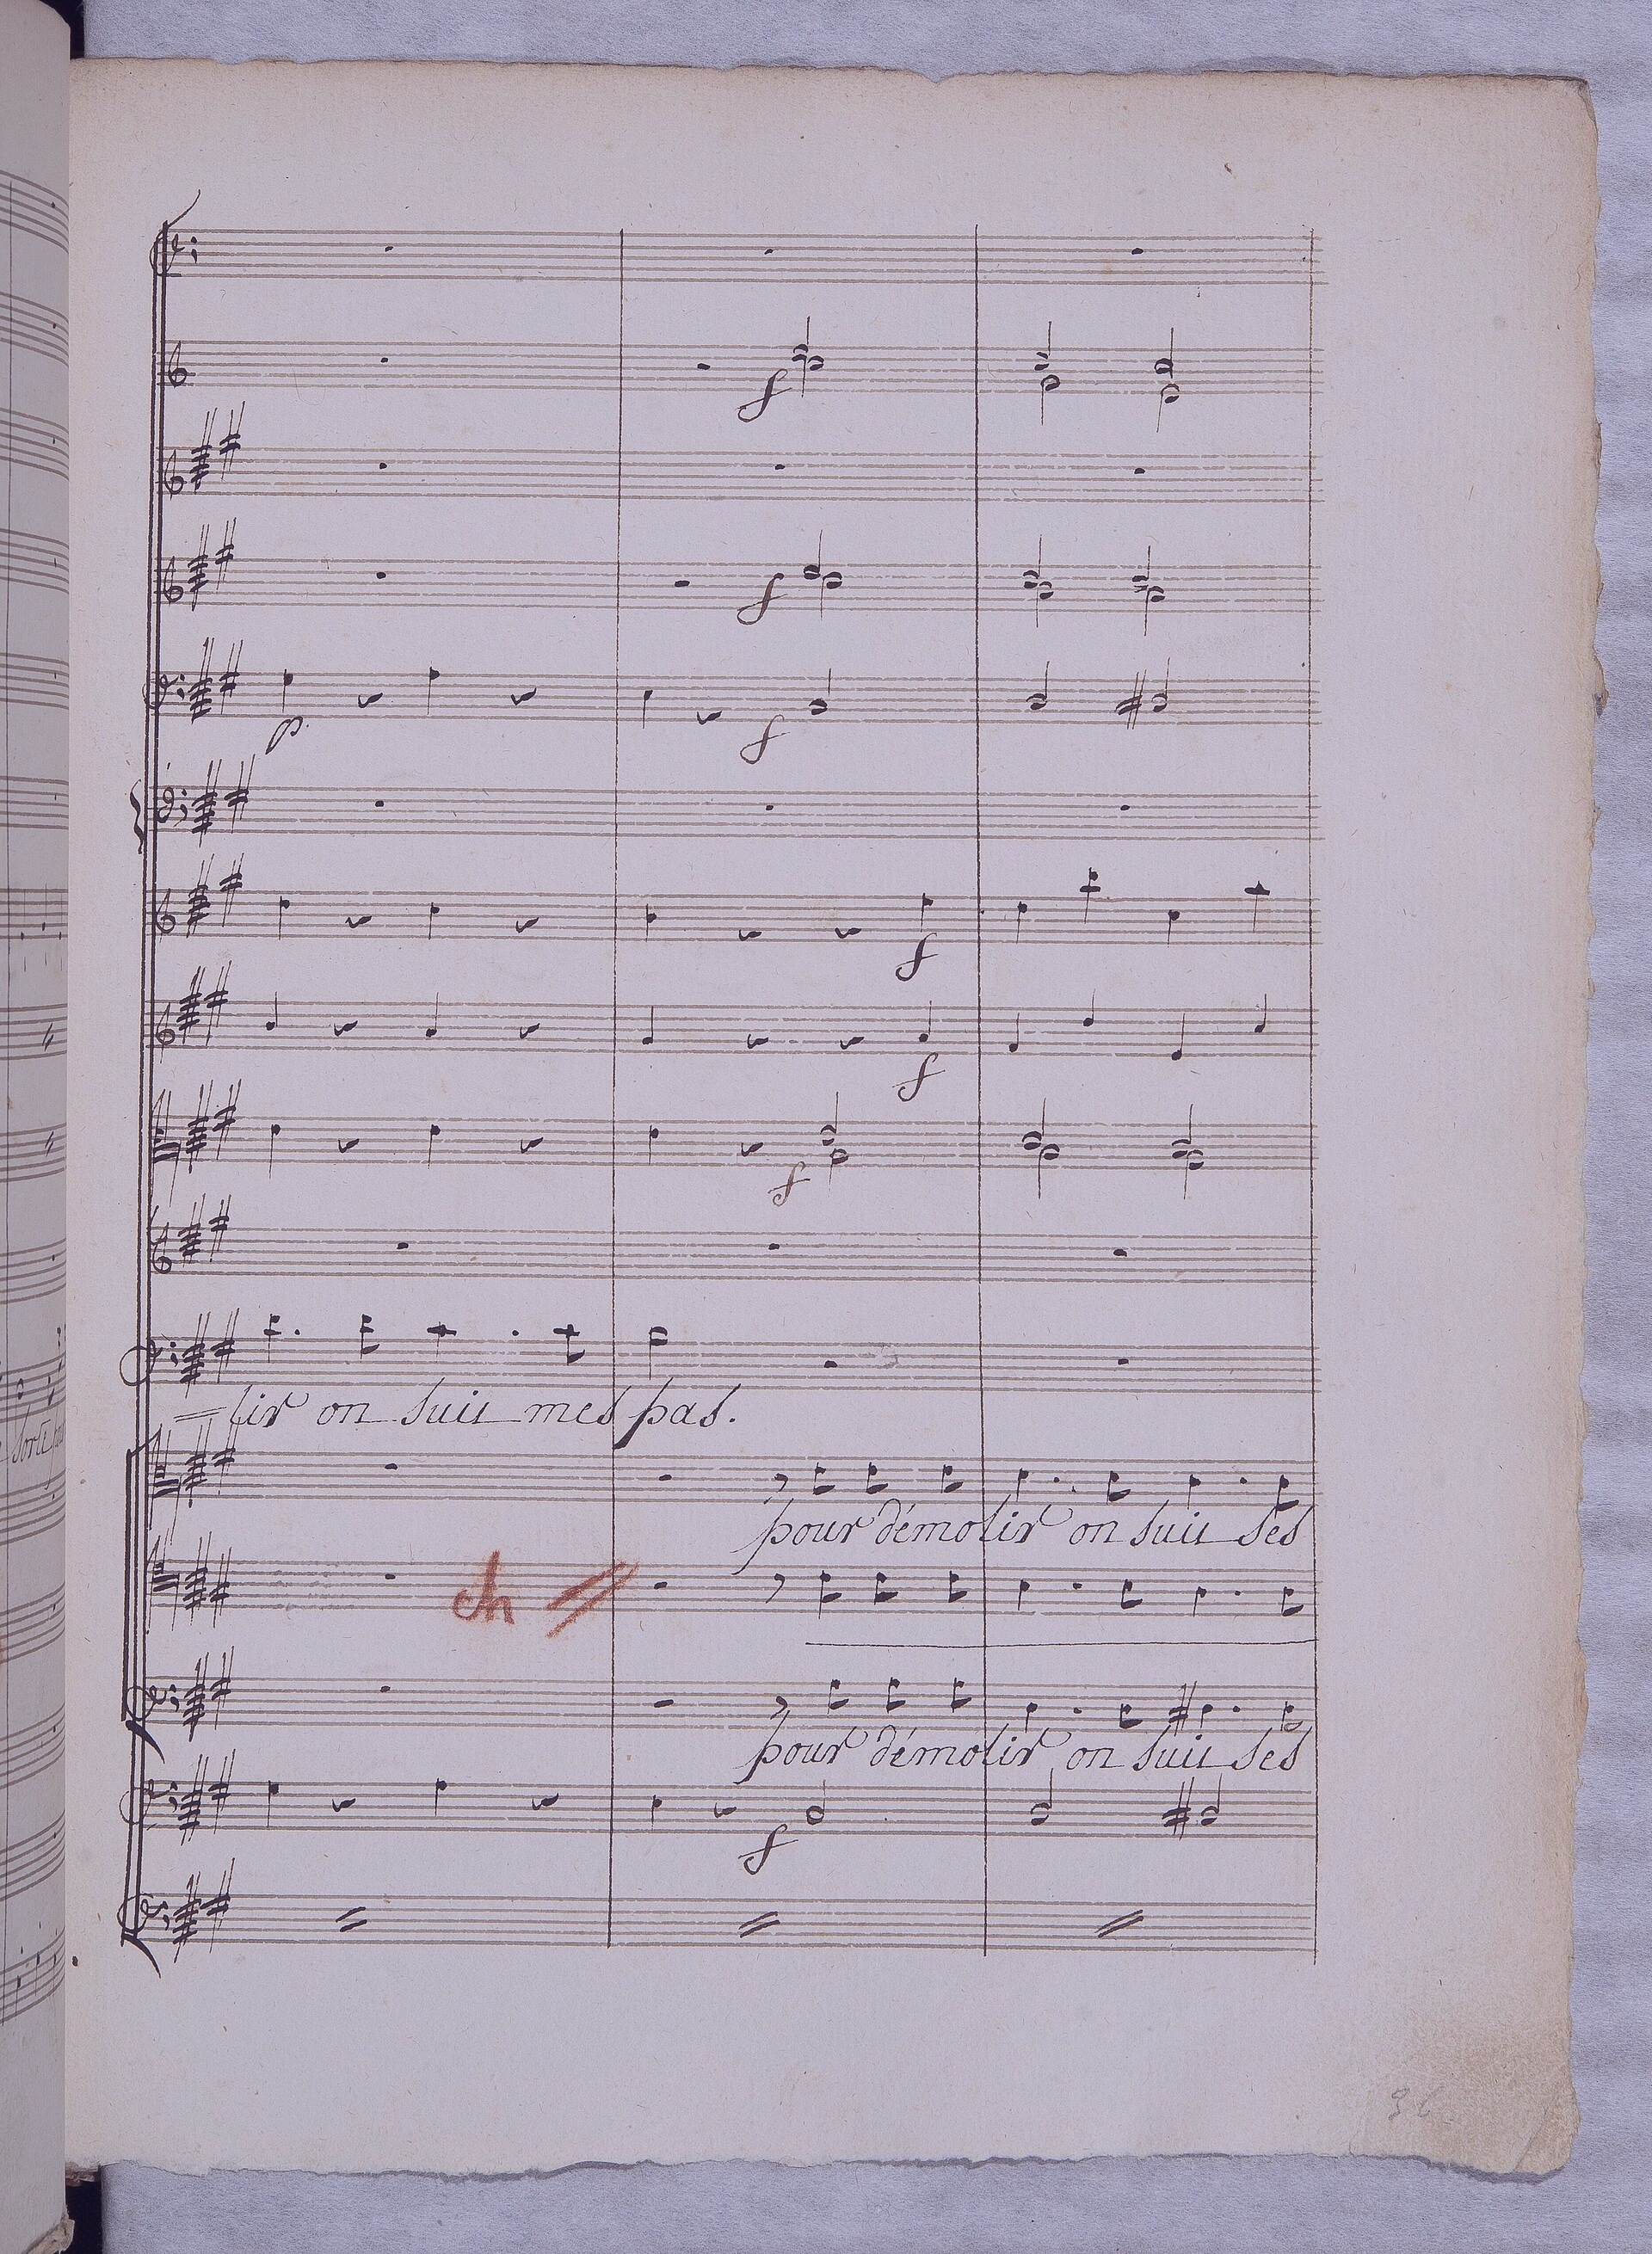 f
f
p.
f
f
f
f
=lir on suit mes pas.
pour démolir on suit ses
ch
pour démolir on suit ses
f
36